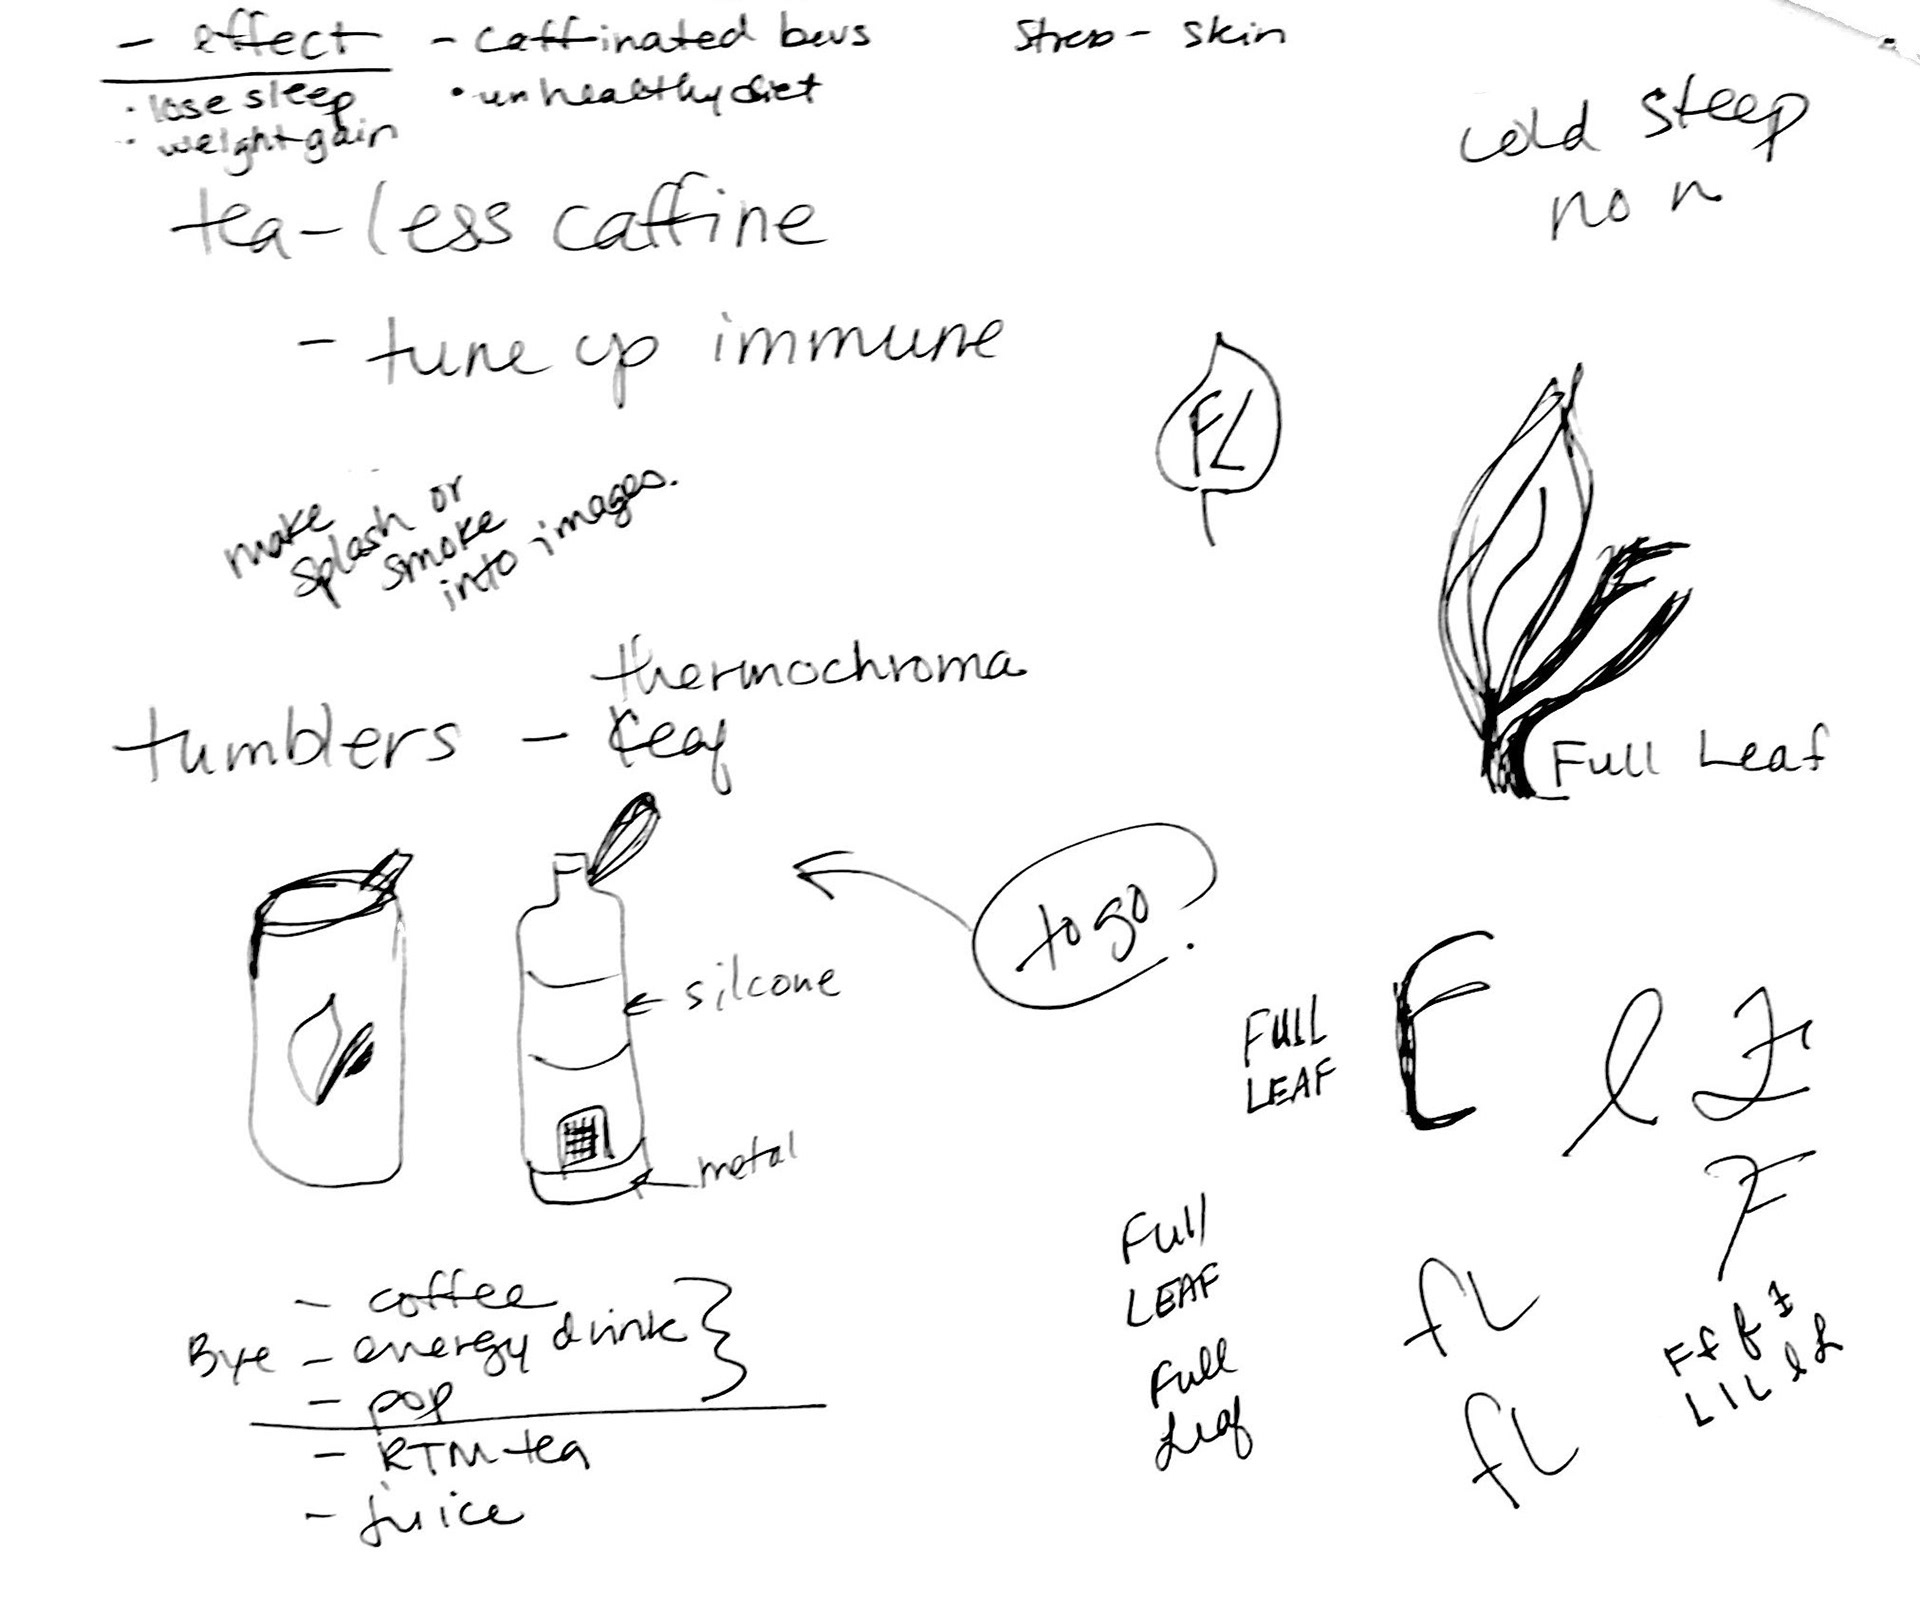 - effect - caffinated bevs
• lose sleep • unhealthy diet
• weight gain
Stress - skin
cold steep
no n
tea - less caffine
- tune up immune
FL
make
splash or
smoke
into images.
Full Leaf
thermochroma
tumblers - leaf
to go
silcone
metal
FULL
LEAF
E l F
F
Full
LEAF
fL
Full
Leaf
fL
- coffee
Bye - energy drink
- pop
- RTM tea
- juice